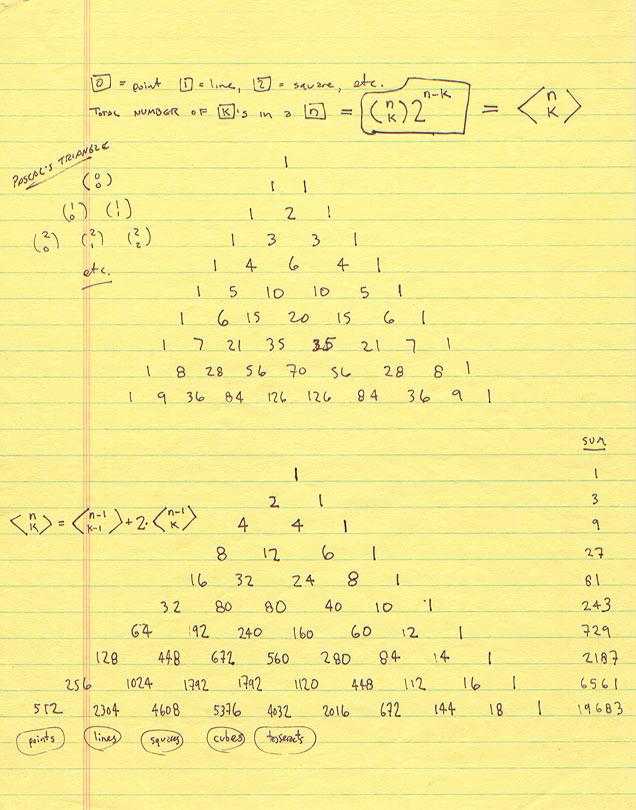 0 = point 1 = line, 2 = square, etc.
TOTAL NUMBER OF K's in a n = (n K) 2^n-K = <n K>
PASCAL'S TRIANGLE
1
(0 0)
1 1
(1 0) (1 1)
1 2 1
(2 0) (2 1) (2 2)
1 3 3 1
etc.
1 4 6 4 1
1 5 10 10 5 1
1 6 15 20 15 6 1
1 7 21 35 35 21 7 1
1 8 28 56 70 56 28 8 1
1 9 36 84 126 126 84 36 9 1
SUM
1 1
2 1 3
<n K> = <n-1 K-1> + 2·<n-1 K>
4 4 1 9
8 12 6 1 27
16 32 24 8 1 81
32 80 80 40 10 1 243
64 192 240 160 60 12 1 729
128 448 672 560 280 84 14 1 2187
256 1024 1792 1792 1120 448 112 16 1 6561
512 2304 4608 5376 4032 2016 672 144 18 1 19683
points lines squares cubes tesseracts